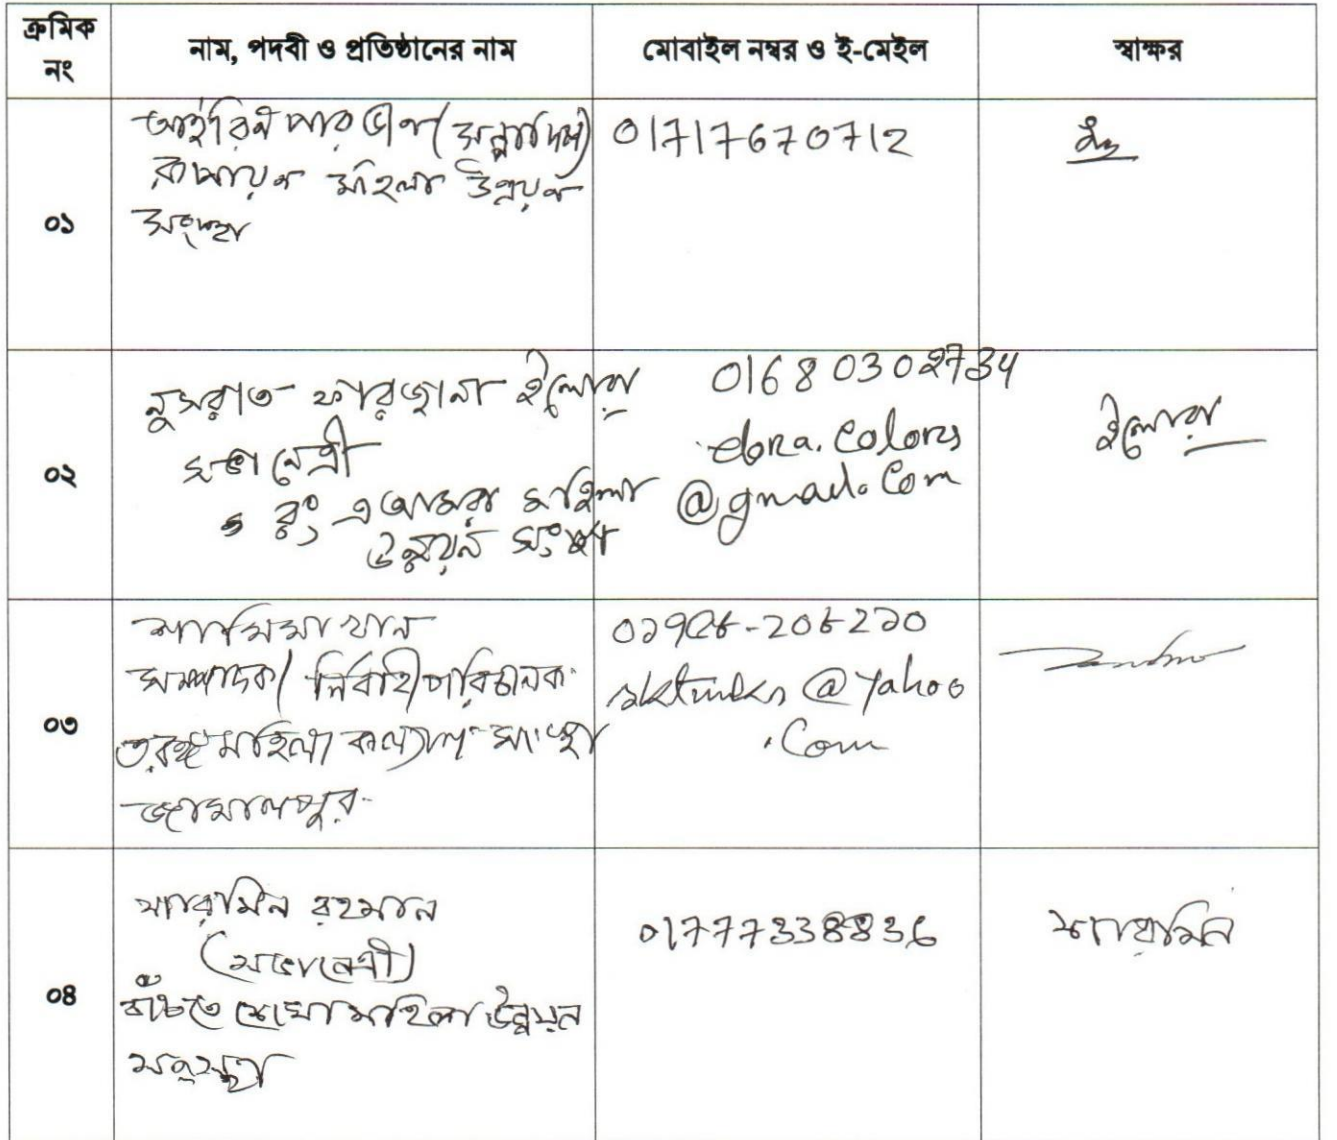 ক্রমিক নং
নাম, পদবী ও প্রতিষ্ঠানের নাম
মোবাইল নম্বর ও ই-মেইল
স্বাক্ষর
০১
আইরিন পারভীন (সম্পাদিকা)
রূপায়ণ মহিলা উন্নয়ণ
সংস্থা
01717670712
০২
নুসরাত ফারজানা ইলোরা
সভানেত্রী
রং এ আমরা মহিলা
উন্নয়ন সংস্থা
01680302734
@gmail.com
ইলোরা
০৩
শামিমা খান
সম্পাদক/ নির্বাহী পরিচালক
তরঙ্গ মহিলা কল্যাণ সংস্থা
জামালপুর
@yahoo
.com
০৪
শারমিন রহমান
(সভানেত্রী)
বাঁচতে শেখো মহিলা উন্নয়ন
সংস্থা
01777338836
শারমিন